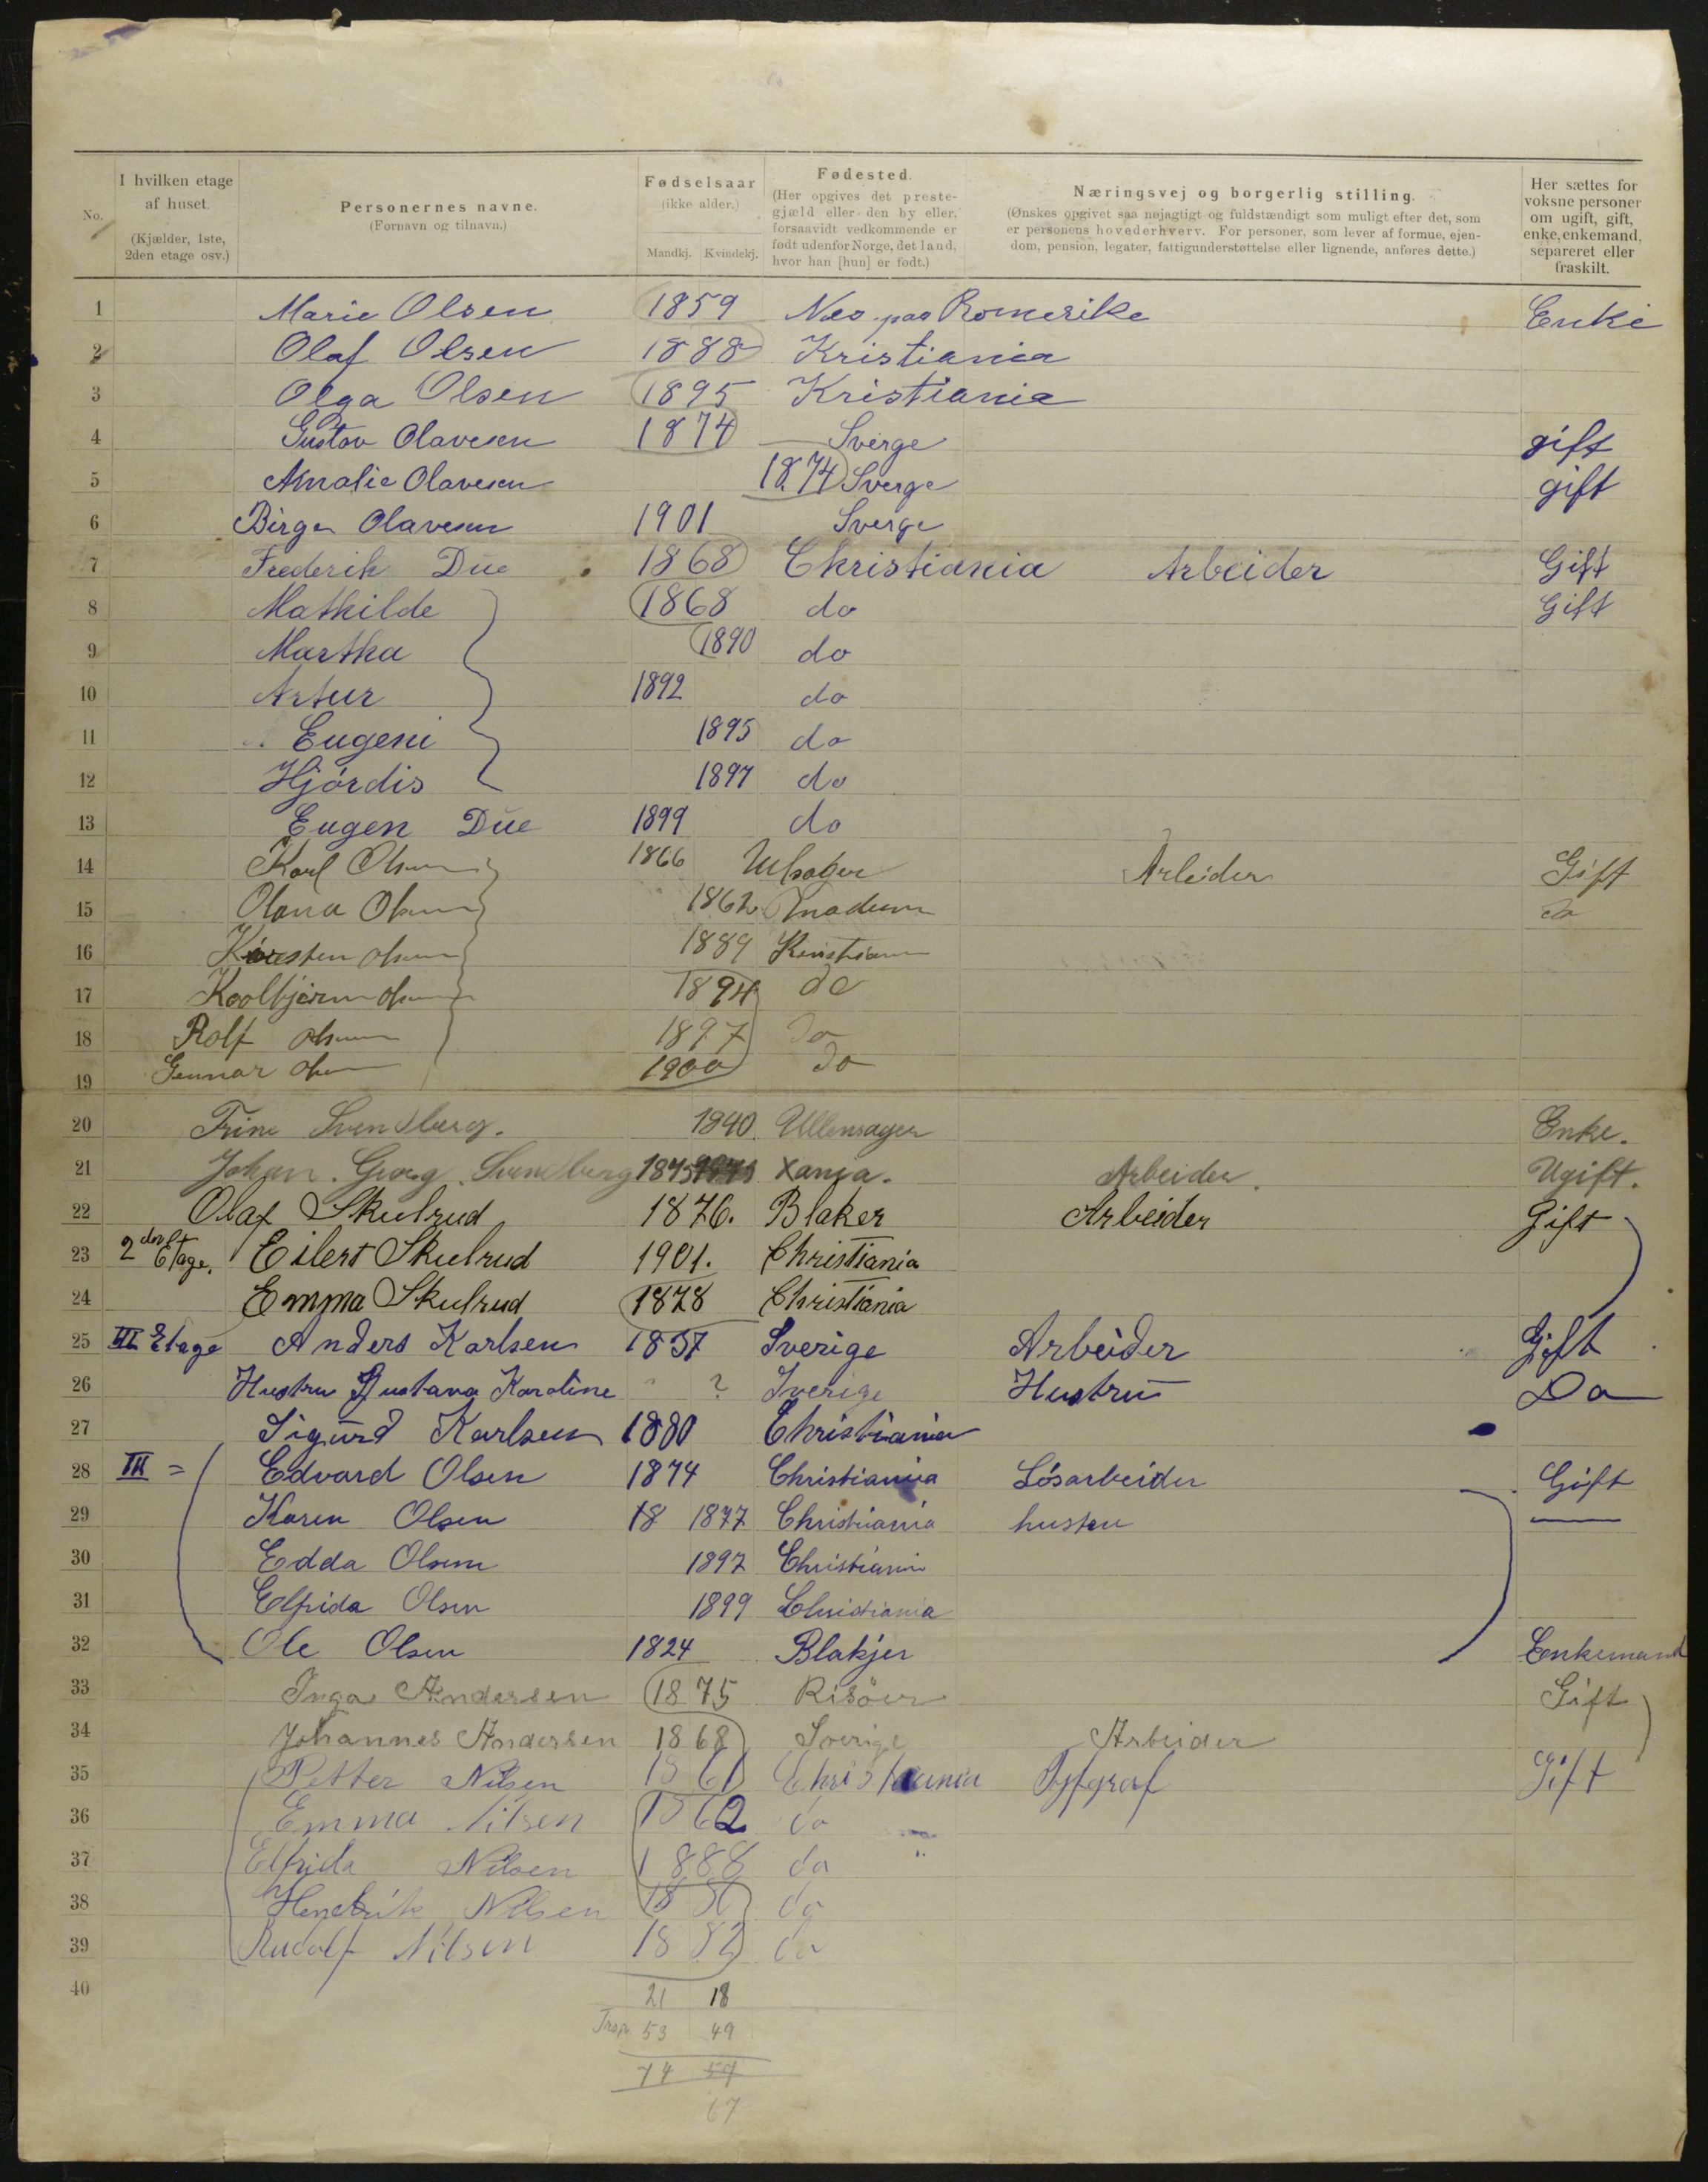 No.
I hvilken etage af huset. (Kjælder, 1ste, 2den etage osv.)
Personernes navne. (Fornavn og tilnavn.)
Fødselsaar (ikke alder.) Mandkj. Kvindekj.
Fødested. (Her opgives det prestegjæld eller den by eller, forsaavidt vedkommende er født udenfor Norge, det land, hvor han [hun] er født.)
Næringsvej og borgerlig stilling. (Ønskes opgivet saa nøjagtigt og fuldstændigt som muligt efter det, som er personens hovederhverv. For personer, som lever af formue, ejendom, pension, legater, fattigunderstøttelse eller lignende, anføres dette.)
Her sættes for voksne personer om ugift, gift, enke, enkemand, separeret eller fraskilt.
1 Marie Olsen 1859 Næs paa Romerike Enke
2 Olaf Olsen 1888 Kristiania
3 Olga Olsen 1895 Kristiania
4 Gustav Olavesen 1874 Sverge gift
5 Amalie Olavesen 1874 Sverge gift
6 Birger Olavesen 1901 Sverge
7 Frederik Due 1868 Christiania Arbeider Gift
8 Mathilde 1868 do Gift
9 Martha 1890 do
10 Artur 1892 do
11 Eugeni 1895 do
12 Hjórdis 1897 do
13 Eugen Due 1899 do
14 Karl Olsen 1866 Arbeider Gift
15 Olava Olsen 1862 do
16 Olsen 1889 Kristiania
17 Kolbjørn Olsen 1894 do
18 Rolf Olsen 1897 do
19 Gunnar Olsen 1900 do
20 Trine Svendberg. 1840 Ullensager Enke.
21 Johan. Georg. Svendberg 1875 Xania. Arbeider. Ugift.
22 Olaf Skulrud 1876. Blaker Arbeider Gift
23 2den Etage. Eilert Skulrud 1901. Christiania
24 Emma Skulrud 1878 Christiania
25 III Etage Anders Karlsen 1837 Sverige Arbeider Gift
26 Hustru Gustava Karoline ? Sverige Hustru Do
27 Sigurd Karlsen 1880 Christiania
28 III = Edvard Olsen 1874 Christiania Lósarbeider Gift
29 Karen Olsen 18 1877 Christiania hustru
30 Edda Olsen 1897 Christiania
31 Elfrida Olsen 1899 Christiania
32 Ole Olsen 1824 Blakjer Enkemand
33 Inga Andersen 1875 Risöer Gift
34 Johannes Andersen 1868 Sverige Arbeider
35 Petter Nilsen 1861 Christiania Gift
36 Emma Nilsen 1862 do
37 Elfrida Nilsen 1888 do
38 Hendrik Nilsen do
39 Rudolf Nilsen do
40 21 18
53 49
74 57
67